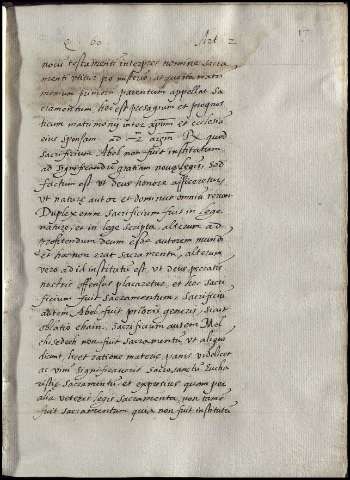 Q 60 Art 2 17
novis testamenti interpres nomine sacra
menti utitur pro misterio, at que ita matri
monium primorum parentum appellat sa
cramentum, hoc est presagium et prognos
ticum matrimonij inter xpum et ecclesia
eius sponsam ad 2 argm R quod
sacrificium Abel non fuit institutum
ad significandum gratiam novæ legis, sed
factum est ut deus honore afficeretur
ut naturæ autor et dominus omnium rerum
Duplex enim sacrificium fuit in lege
naturæ, et in lege scripta, alterum ad
profitendum deum esse autorem mundi
et hoc non erat sacramentum, alterum
vero ad id institutum est, ut deus peccatis
nostris offensus placaretur, et hoc sac
rificium fuit sacramentum, sacrificium
autem Abel fuit prioris generis, sicut
oblatio chain. Sacrificium autem Mel
chisedech non fuit sacramentum ut aliqui
dicunt, licet ratione materiæ, panis videlicet
ac vini significaverit sacrosanctum Eucha
ristiæ sacramentum et expressius quam per
alia veteris legis sacramenta, non tamen
fuit sacramentum quia non fuit institutum